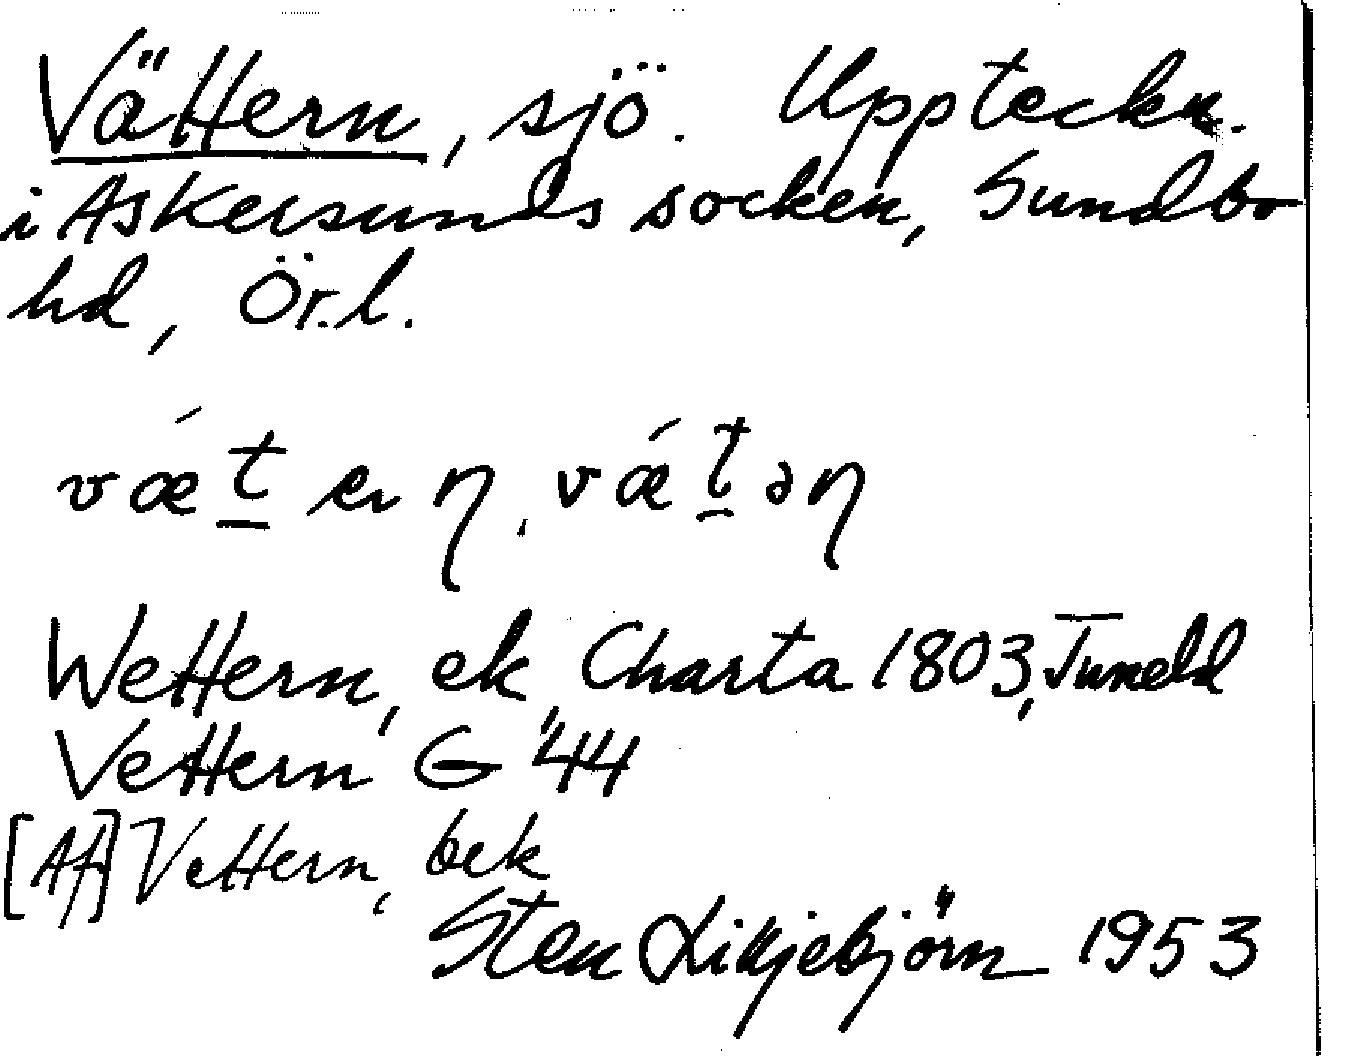 Vättern, sjö. Uppteckn.
i Askersunds socken, Sundbo
hd, Ör.l.
vǽt̠ eɳ, vǽt̠əɳ
Wettern, ek, Charta 1803, Tuneld
Vettern G "44
[Af] Vettern, bek
Sten Lilljebjörn 1953